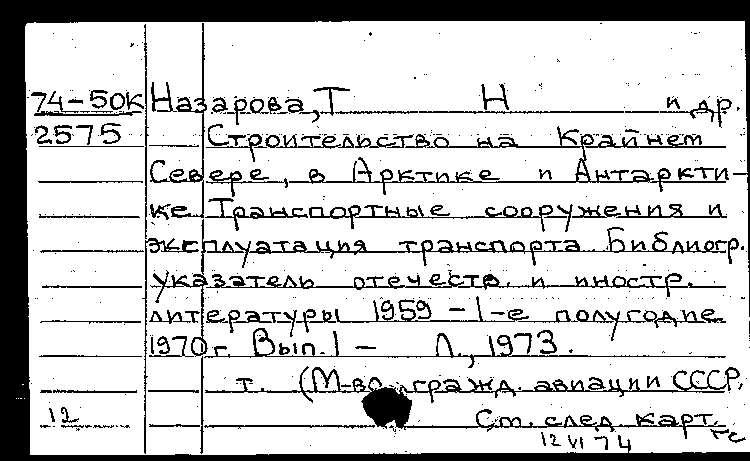 74-50К Назарова, Т Н и др.
2575 Строительство на Крайнем
Севере, в Арктике и Антаркти-
ке Транспортные сооружения и
эксплуатация транспорта. Библиогр.
указатель отечеств. и иностр.
литературы 1959 - 1-е полугодие
1970 г. Вып. 1 - Л., 1973.
т. (М-во гражд. авиации СССР.
12 Ст. след. карт.
12 VI 74